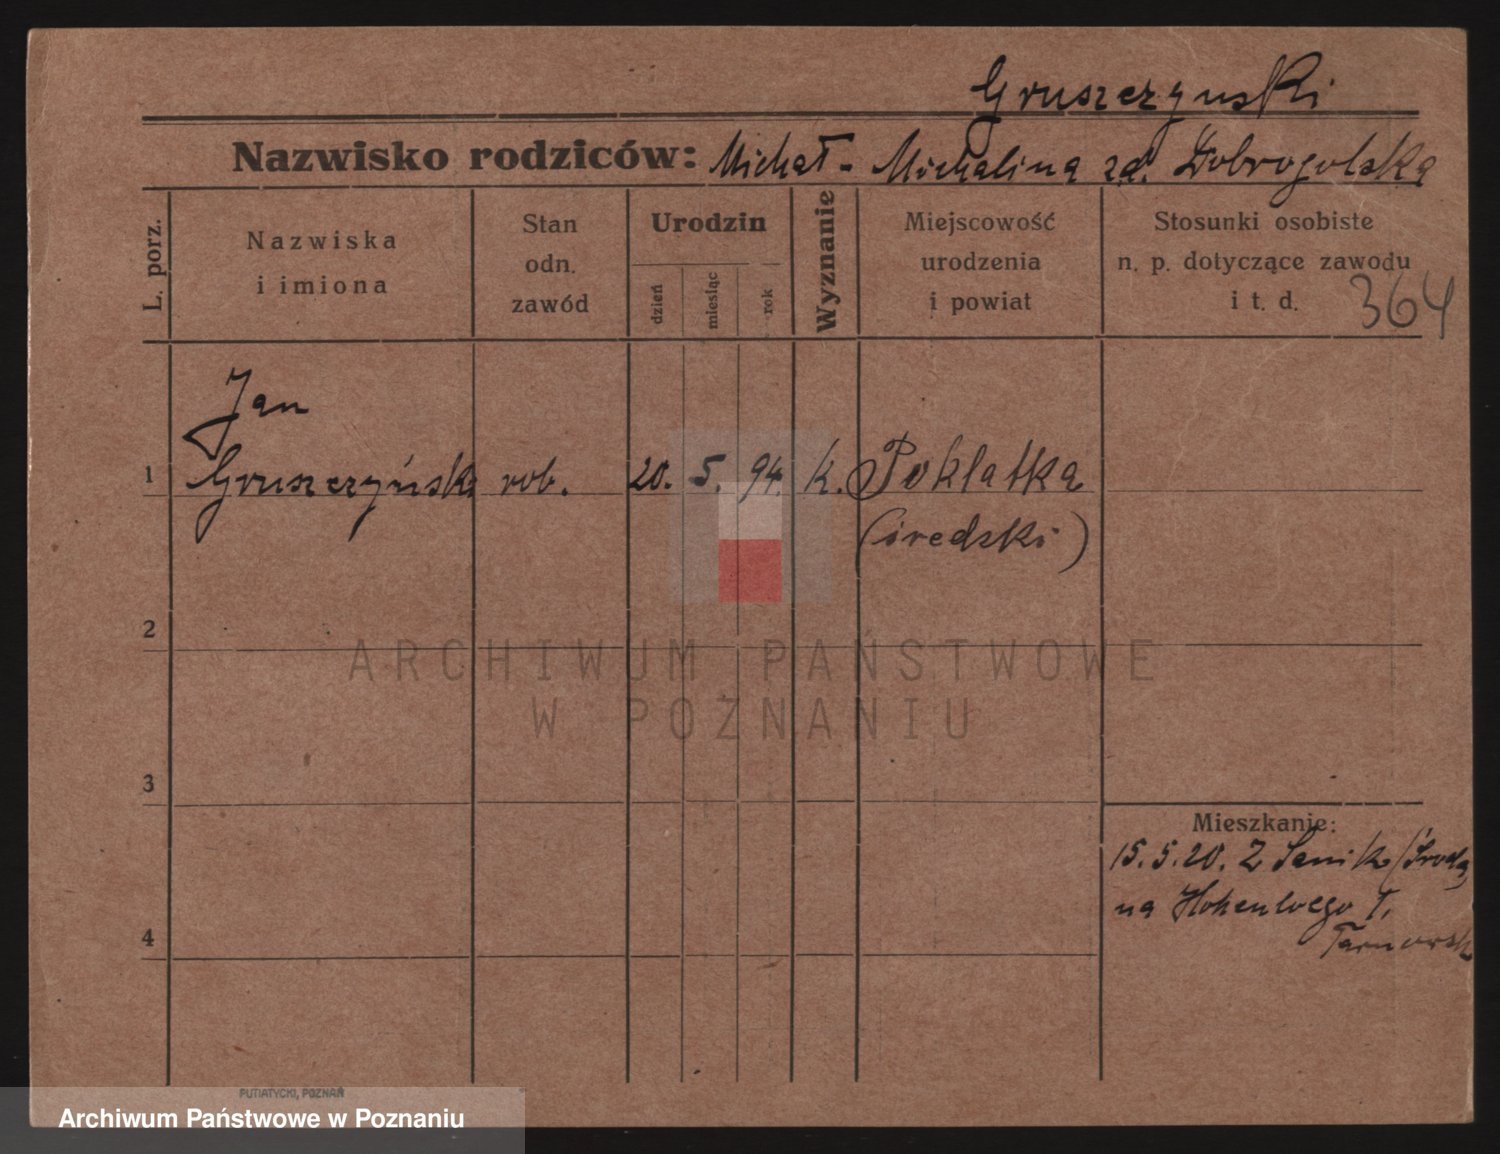 Gruszczynski
Nazwisko rodziców: Michał - Michalina zd. Dobrogolska
L. porz.
Nazwiska
i imiona
Stan
odn.
zawód
Urodzin
dzień
miesiąc
rok
Wyznanie
Miejscowość
urodzenia
i powiat
Stosunki osobiste
n. p. dotyczące zawodu
i t. d.
364
Jan
1 Gruszczyński rob. 20. 5. 94. k. Poklatka
(średzki)
2
ARCHIWUM PAŃSTWOWE
W POZNANIU
3
Mieszkanie:
15.5.20. Z /Środa
na Hohenloego 1.
4
PUTIATYCKI, POZNAŃ
Archiwum Państwowe w Poznaniu